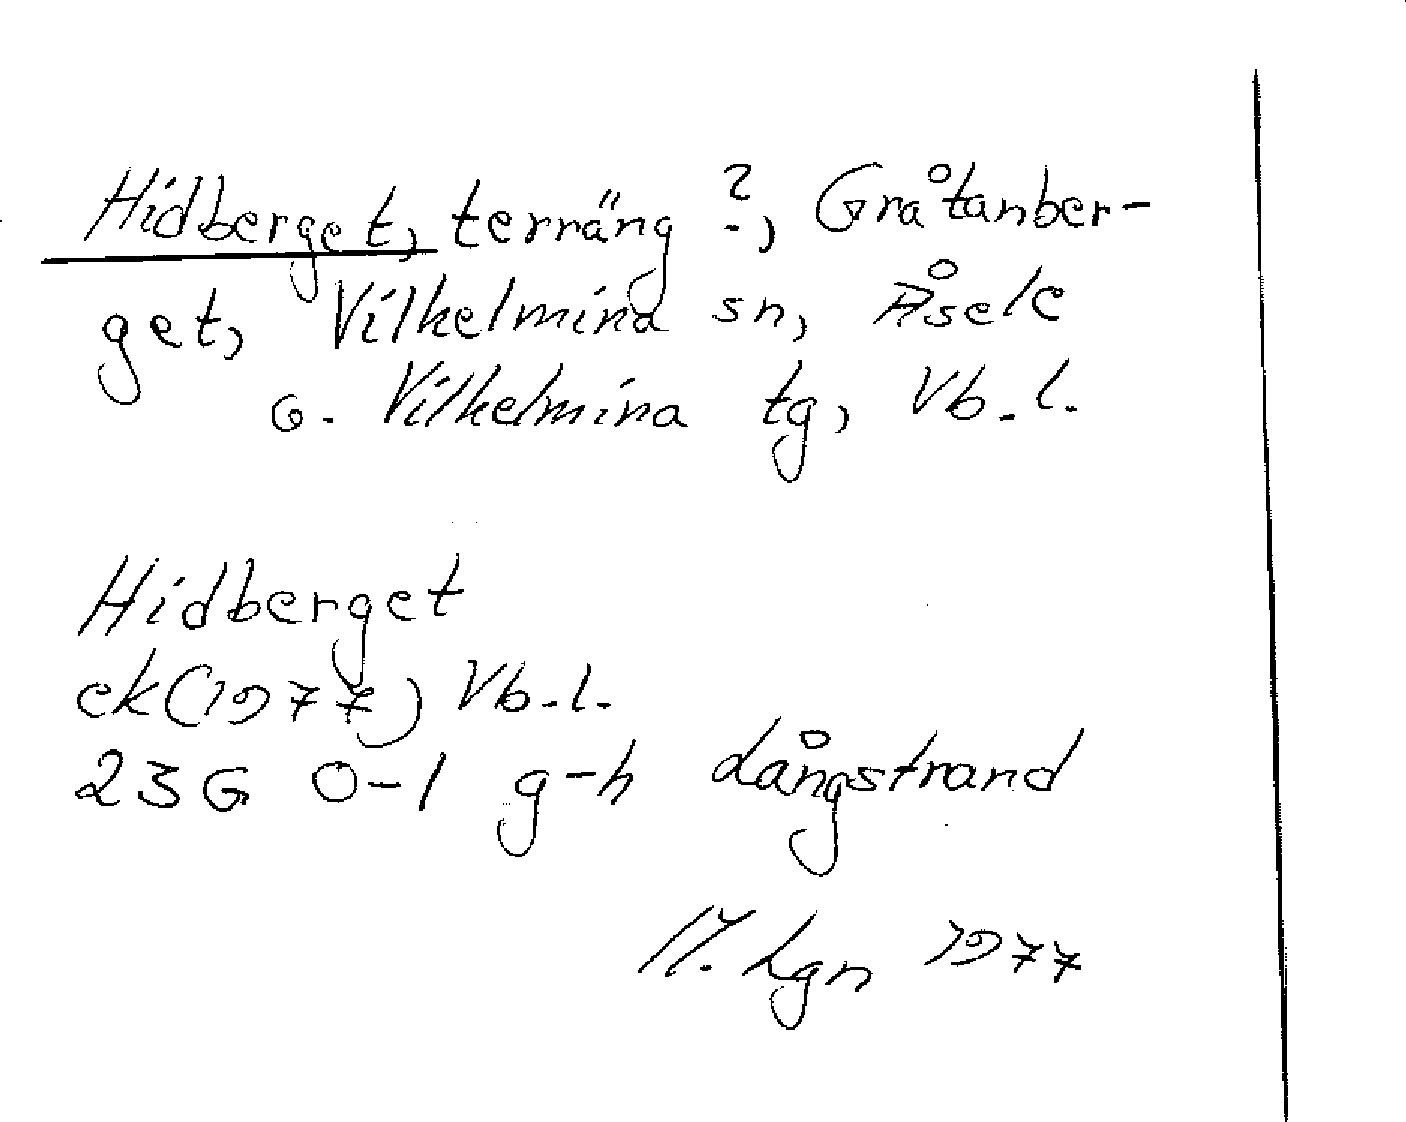 Hidberget, terräng ?, Gråtanber-
get, Vilhelmina sn, Åsele
o. Vilhelmina tg, Vb.l.
Hidberget
ek(1977) Vb.l.
23G 0-1 g-h Långstrand
M. Lgn 1977